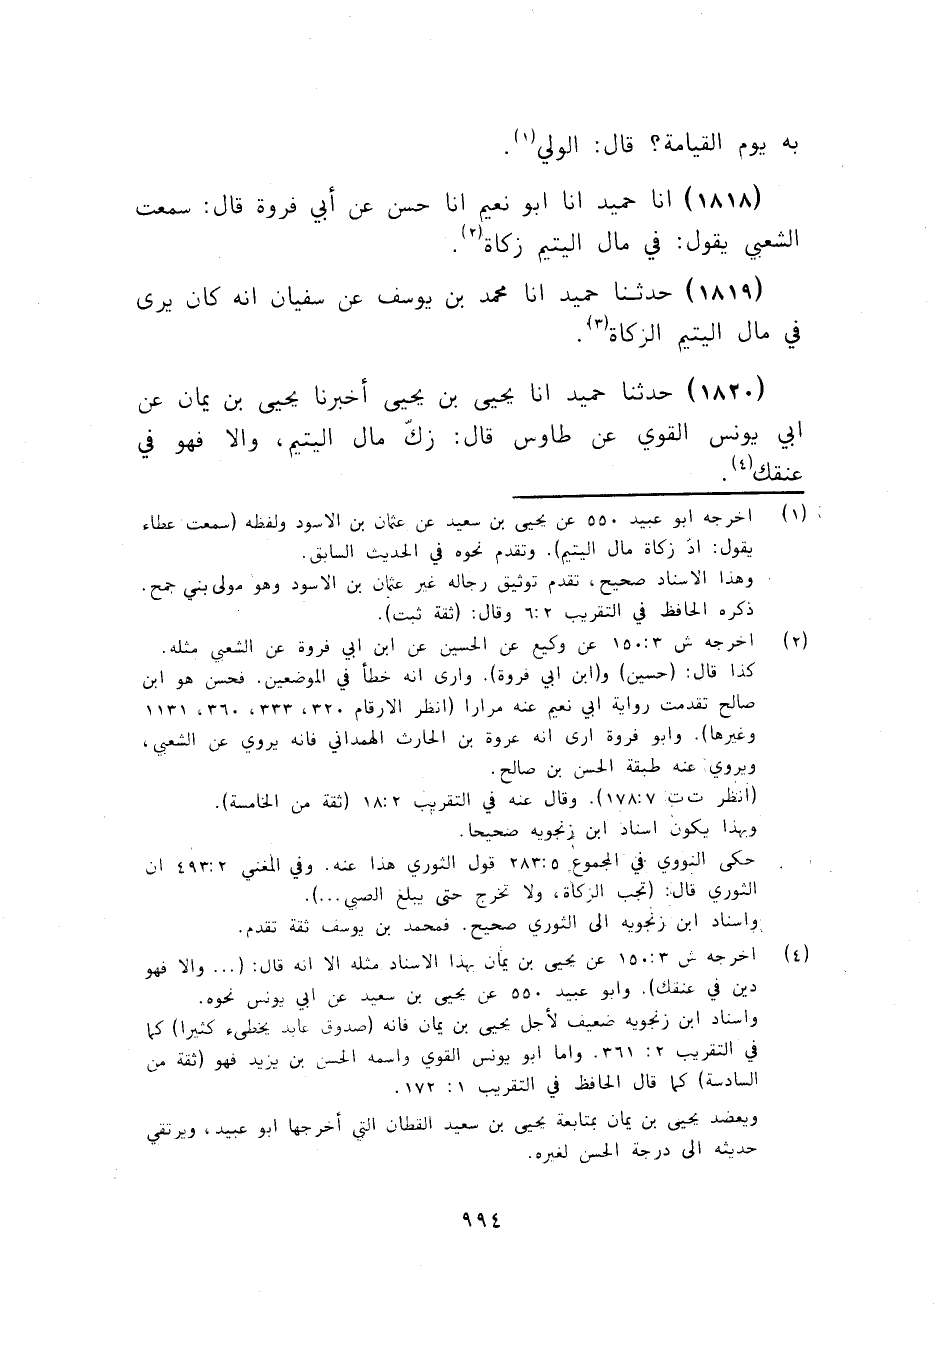 به يوم القيامة؟ قال: الولي(١).
(١٨١٨) انا حميد انا ابو نعيم انا حسن عن أبي فروة قال: سمعت
الشعبي يقول: في مال اليتيم زكاة(٢).
(١٨١٩) حدثنا حميد انا محمد بن يوسف عن سفيان انه كان يرى
في مال اليتيم الزكاة(٣).
(١٨٢٠) حدثنا حميد انا يحيى بن يحيى أخبرنا يحيى بن يمان عن
ابي يونس القوي عن طاوس قال: زكّ مال اليتيم، والا فهو في
عنقك(٤).
(١) اخرجه ابو عبيد ٥٥٠ عن يحيى بن سعيد عن عثمان بن الاسود ولفظه (سمعت عطاء
يقول: ادّ زكاة مال اليتيم). وتقدم نحوه في الحديث السابق.
وهذا الاسناد صحيح، تقدم توثيق رجاله غير عثمان بن الاسود وهو مولى بني جمح.
ذكره الحافظ في التقريب ٦:٢ وقال: (ثقة ثبت).
(٢) اخرجه ش ١٥٠:٣ عن وكيع عن الحسين عن ابن ابي فروة عن الشعبي مثله.
كذا قال: (حسين) و(ابن ابي فروة). وارى انه خطأ في الموضعين. فحسن هو ابن
صالح تقدمت رواية ابي نعيم عنه مرارا (انظر الارقام ٣٢٠، ٣٣٣، ٣٦٠، ١١٣١
وغيرها). وابو فروة ارى انه عروة بن الحارث الهمداني فانه يروي عن الشعبي،
ويروي عنه طبقة الحسن بن صالح.
(انظر ت ت ١٧٨:٧). وقال عنه في التقريب ١٨:٢ (ثقة من الخامسة).
وبهذا يكون اسناد ابن زنجويه صحيحا.
حكى النووي في المجموع ٢٨٣:٥ قول الثوري هذا عنه. وفي المغني ٤٩٣:٢ ان
الثوري قال: (تجب الزكاة، ولا تخرج حتى يبلغ الصبي...).
واسناد ابن زنجويه الى الثوري صحيح. فمحمد بن يوسف ثقة تقدم.
(٤) اخرجه ش ١٥٠:٣ عن يحيى بن يمان بهذا الاسناد مثله الا انه قال: (... والا فهو
دين في عنقك). وابو عبيد ٥٥٠ عن يحيى بن سعيد عن ابي يونس نحوه.
واسناد ابن زنجويه ضعيف لأجل يحيى بن يمان فانه (صدوق عابد يخطىء كثيرا) كما
في التقريب ٢: ٣٦١. واما ابو يونس القوي واسمه الحسن بن يزيد فهو (ثقة من
السادسة) كما قال الحافظ في التقريب ١: ١٧٢.
ويعضد يحيى بن يمان بمتابعة يحيى بن سعيد القطان التي أخرجها ابو عبيد، ويرتقي
حديثه الى درجة الحسن لغيره.
٩٩٤